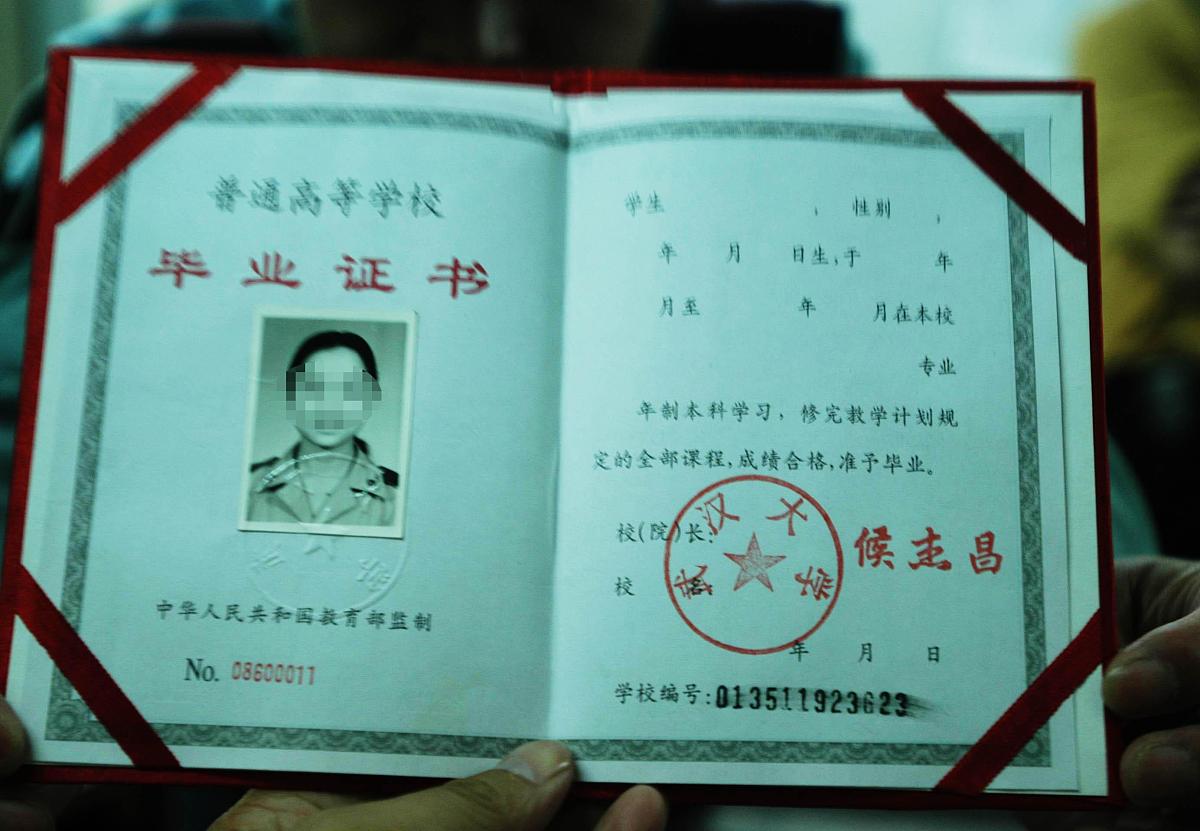 普通高等学校
毕业证书
中华人民共和国教育部监制
No. 08600011
学生 , 性别 ,
年 月 日生,于 年
月至 年 月在本校
专业
年制本科学习，修完教学计划规
定的全部课程,成绩合格,准予毕业。
校(院)长: 候杰昌
校 名:
武汉大学
年 月 日
学校编号:013511923623